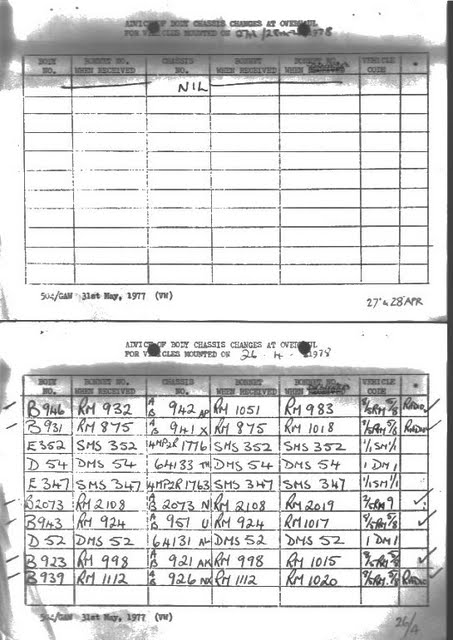 ADVICE OF BODY CHASSIS CHANGES AT OVERHAUL
FOR VEHICLES MOUNTED ON 1978
BODY NO. BONNET NO. WHEN RECEIVED CHASSIS NO. BONNET NO. WHEN RECEIVED BONNET NO. WHEN VEHICLE CODE
NIL
31st May, 1977 (VW)
27 & 28 APR
ADVICE OF BODY CHASSIS CHANGES AT OVERHAUL
FOR VEHICLES MOUNTED ON 26 . 4 . 1978
BODY NO. BONNET NO. WHEN RECEIVED CHASSIS NO. BONNET NO. WHEN RECEIVED BONNET NO. WHEN VEHICLE CODE
B946 RM 932 A/B 942 AP RM 1051 RM 983 RADIO
B931 RM 875 A/B 941 X RM 875 RM 1018 RADIO
E352 SMS 352 4MP2R 1776 SMS 352 SMS 352 1/1SM1/1
D 54 DMS 54 64133 DMS 54 DMS 54 1 DM 1
E347 SMS 347 4MP2R 1763 SMS 347 SMS 347 1/1SM1/1
B2073 RM 2108 A/B 2073 N RM 2108 RM 2019
B943 RM 924 A/B 957 U RM 924 RM 1017
D 52 DMS 52 64131 DMS 52 DMS 52 1 DM 1
B923 RM 998 A/B 921 AK RM 998 RM 1015
B939 RM 1112 A/B 926 RM 1112 RM 1020 RADIO
31st May, 1977 (VW)
26/4